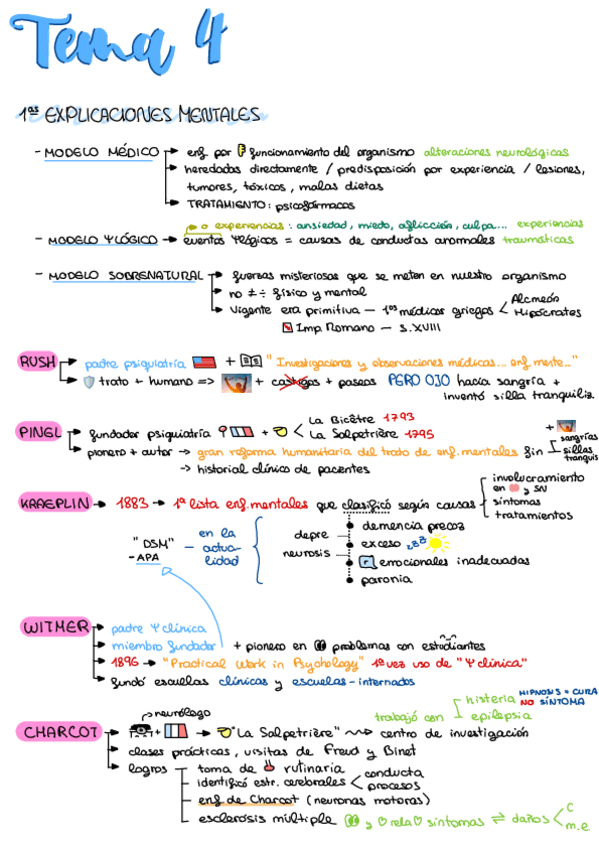 Tema 4
1as EXPLICACIONES MENTALES
- MODELO MÉDICO → enf. por funcionamiento del organismo alteraciones neurológicas
→ heredadas directamente / predisposición por experiencia / lesiones,
tumores, tóxicos, malas dietas
→ TRATAMIENTO: psicofármacos
→ o experiencias: ansiedad, miedo, aflicción, culpa... experiencias
- MODELO Ψ LÓGICO → eventos Ψlógicos = causas de conductas anormales traumáticas
- MODELO SOBRENATURAL → fuerzas misteriosas que se meten en nuestro organismo
→ no ≠ ÷ físico y mental
→ Vigente era primitiva — 1os médicos griegos < Alcmeón
Hipócrates
Imp. Romano — S.XVIII
RUSH → padre psiquiatría + "Investigaciones y observaciones médicas... enf. mente..."
→ trato + humano => + castigos + paseos PERO OJO hacía sangría +
inventó silla tranquiliz.
PINEL → fundador psiquiatría + < La Bicêtre 1793
La Salpetrière 1795
→ pionero + autor → gran reforma humanitaria del trato de enf. mentales fin
+ sangrías
sillas
tranquis
→ historial clínico de pacientes
KRAEPLIN → 1883 → 1ª lista enf. mentales que clasificó según causas
involucramiento
en y SN
síntomas
tratamientos
"DSM"
- APA
— en la
actua-
lidad
depre
neurosis
demencia precoz
exceso zzz
emocionales inadecuadas
paronia
WITMER → padre Ψ clínica
→ miembro fundador + pionero en problemas con estudiantes
→ 1896 → "Practical Work in Psychology" 1ª vez uso de "Ψ clínica"
→ fundó escuelas clínicas y escuelas-internados
CHARCOT → + → "La Salpetriere" → centro de investigación
→ neurólogo
trabajó con
histeria HIPNOSIS = CURA
NO SÍNTOMA
epilepsia
→ clases prácticas, visitas de Freud y Binet
→ logros — toma de rutinaria
— identificó estr. cerebrales < conducta
procesos
— enf. de Charcot (neuronas motoras)
— esclerosis múltiple y rela síntomas ⇌ daños < C
m.e